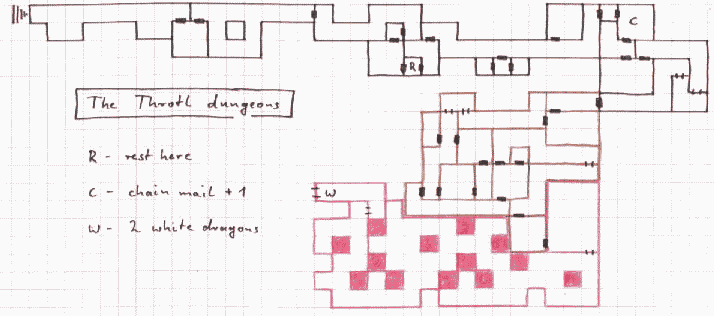 C
R
The Throtl dungeons
R - rest here
C - chain mail + 1
W - 2 white dragons
W